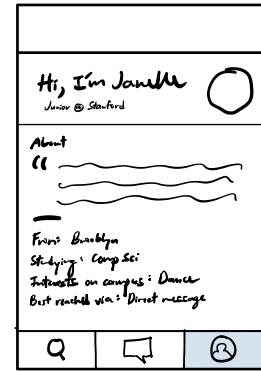 Hi, I'm Janelle
Junior @ Stanford
About
“
From: Brooklyn
Studying: Comp Sci
Interests on campus: Dance
Best reached via: Direct message